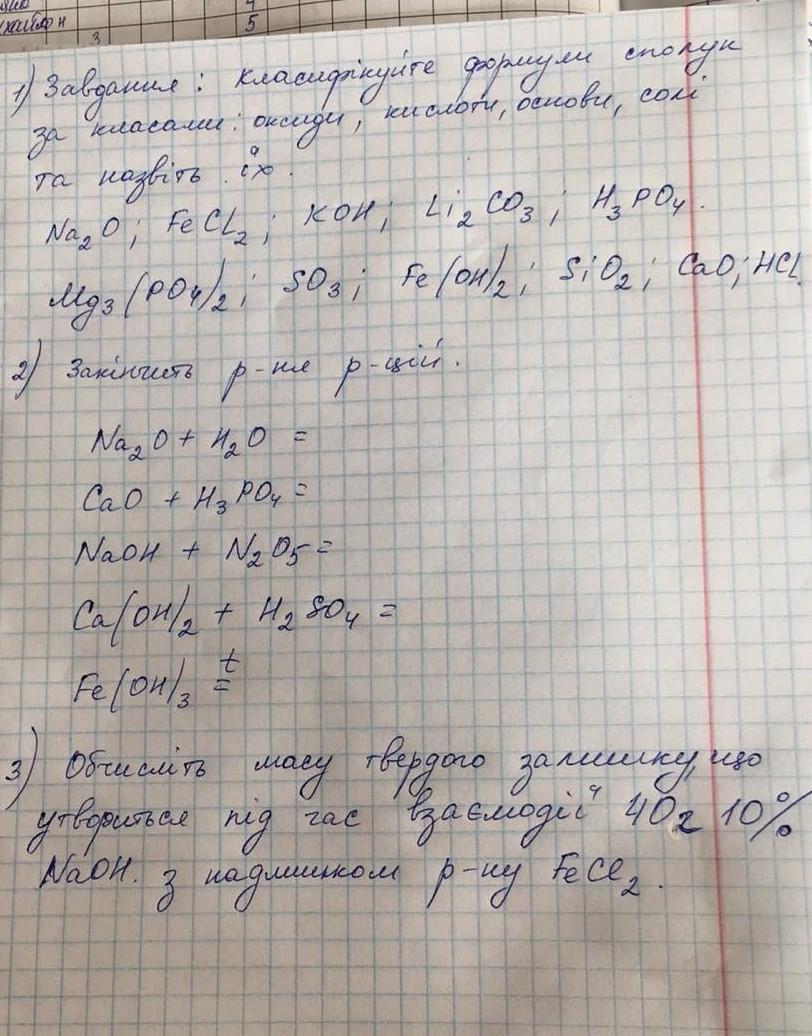 5
3
1) Завдання: класифікуйте формули сполук
за класами: оксиди, кислоти, основи, солі
та назвіть їх.
Na₂O; FeCl₂; KOH; Li₂CO₃; H₃PO₄.
Mg₃(PO₄)₂; SO₃; Fe(OH)₂; SiO₂; CaO; HCl.
2) Закінчить р-ня р-цій.
Na₂O + H₂O =
CaO + H₃PO₄ =
NaOH + N₂O₅ =
Ca(OH)₂ + H₂SO₄ =
t
Fe(OH)₃ =
3) Обчисліть масу твердого залишку, що
утвориться під час взаємодії 40г 10%
NaOH. з надлишком р-ну FeCl₂.